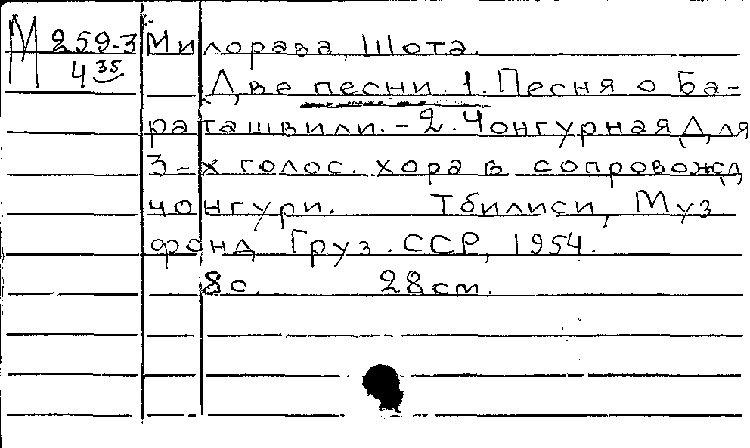 М 259-3 Милорава, Шота.
4 35
Две песни. 1. Песня о Ба-
раташвили. - 2. Чонгурная Для
3-х голос. хора в сопровожд
чонгури. Тбилиси, Муз
фонд Груз. ССР, 1954.
8 с. 28 см.